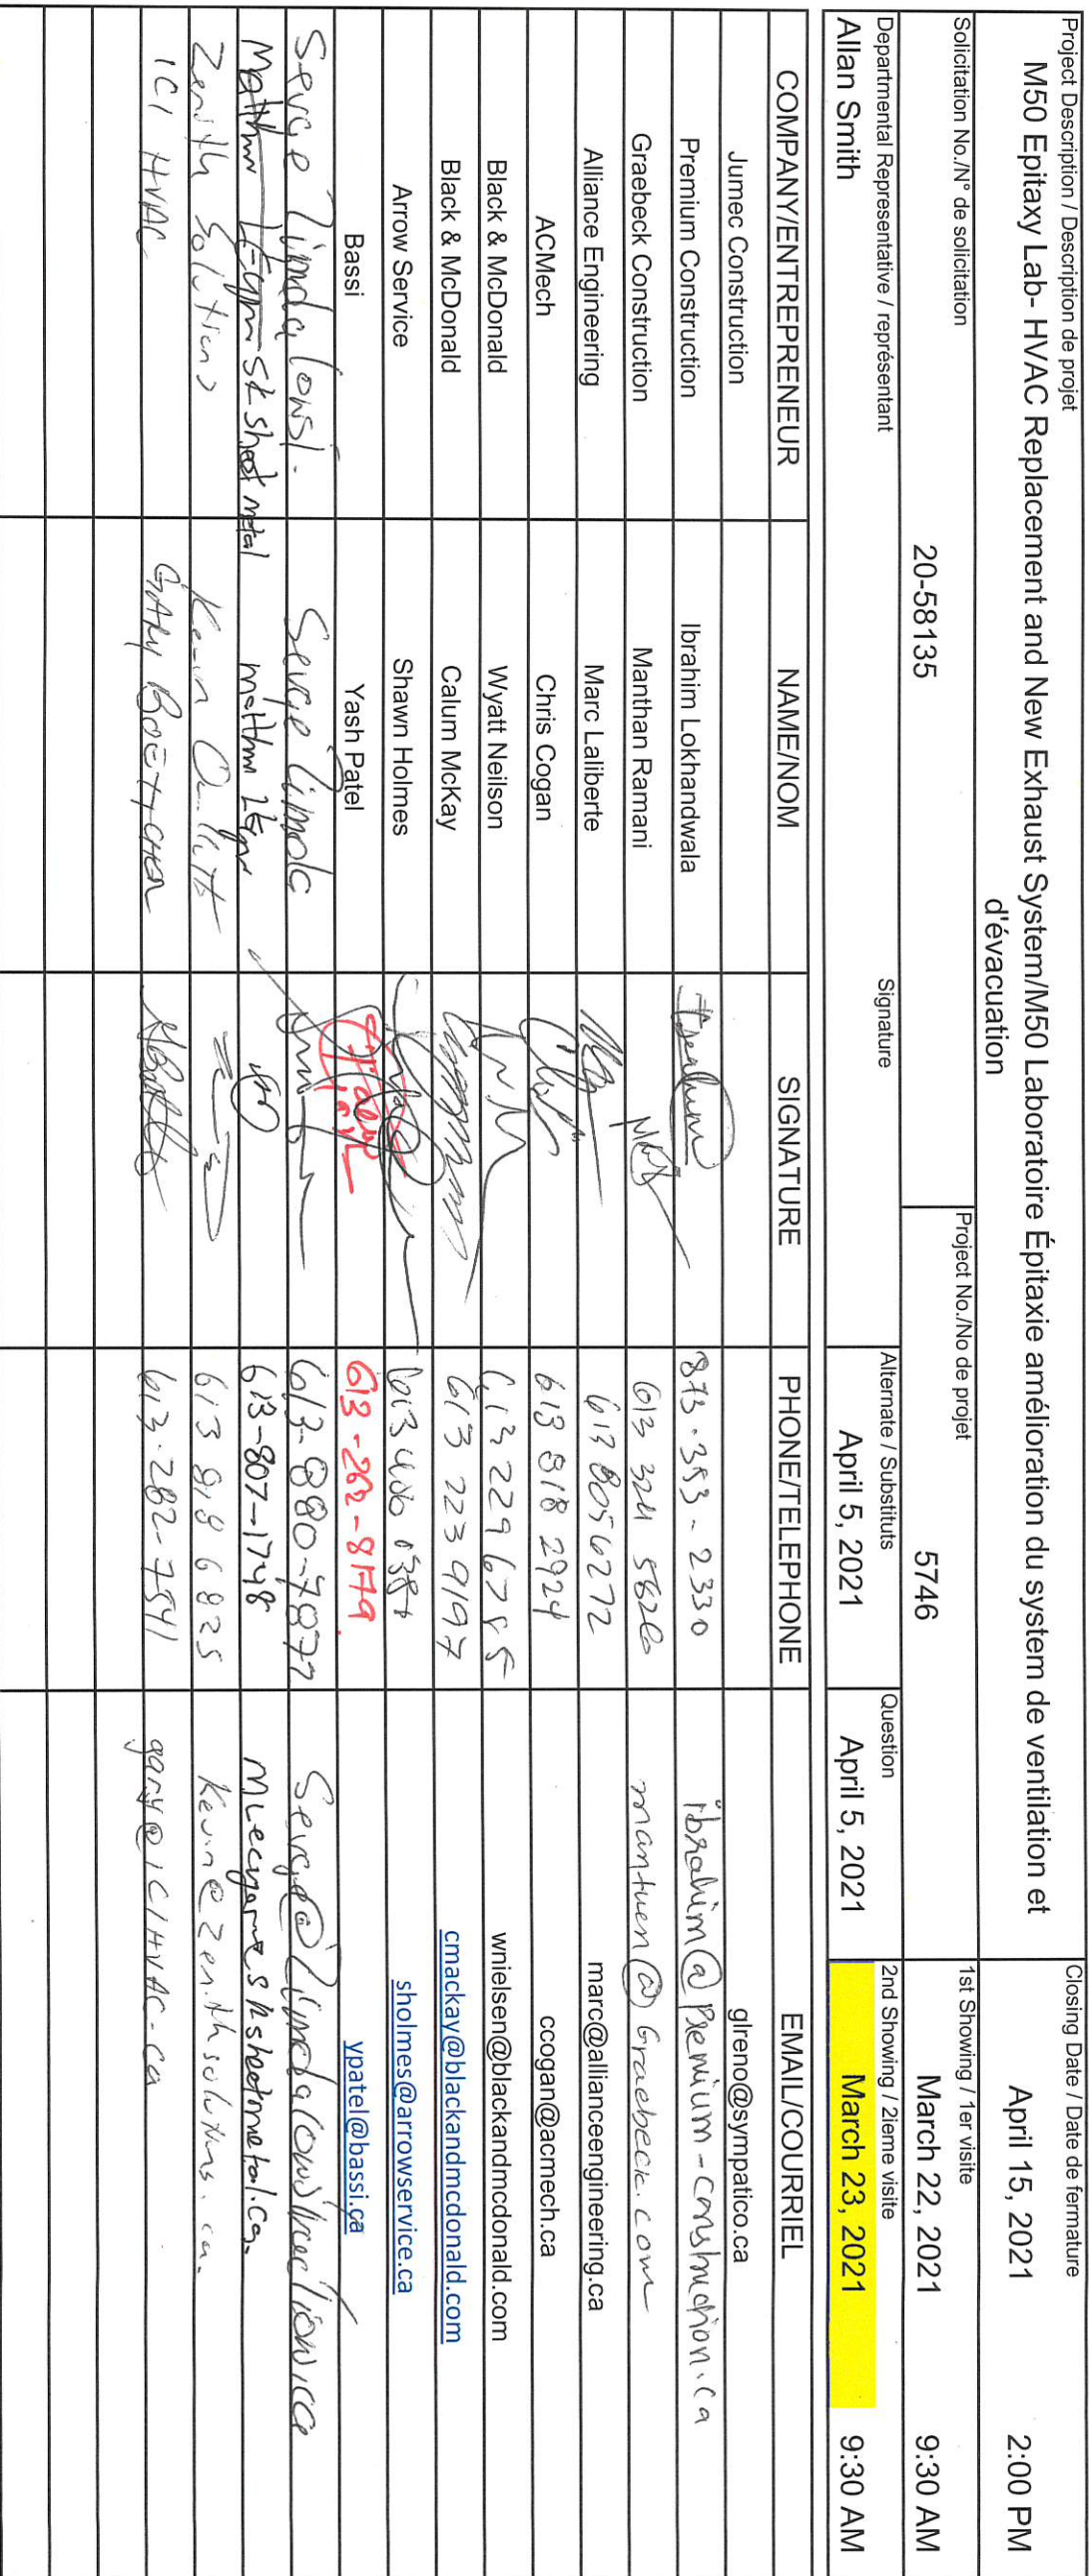 Project Description / Description de projet
M50 Epitaxy Lab- HVAC Replacement and New Exhaust System/M50 Laboratoire Épitaxie amélioration du system de ventilation et
d'évacuation
Closing Date / Date de fermature
April 15, 2021 2:00 PM
Solicitation No./N° de solicitation
20-58135
Project No./No de projet
5746
1st Showing / 1er visite
March 22, 2021 9:30 AM
Departmental Representative / représentant
Allan Smith
Signature
Alternate / Substituts
April 5, 2021
Question
April 5, 2021
2nd Showing / 2ieme visite
March 23, 2021 9:30 AM
COMPANY/ENTREPRENEUR NAME/NOM SIGNATURE PHONE/TELEPHONE EMAIL/COURRIEL
Jumec Construction glreno@sympatico.ca
Premium Construction Ibrahim Lokhandwala 873-353-2330 ibrahim@premium-construction.ca
Graebeck Construction Manthan Ramani 613 324 5826 manthen@Graebeck.com
Alliance Engineering Marc Laliberte 613 805 6272 marc@allianceengineering.ca
ACMech Chris Cogan 613 818 2924 ccogan@acmech.ca
Black & McDonald Wyatt Neilson 613 229 6785 wnielsen@blackandmcdonald.com
Black & McDonald Calum McKay 613 223 9197 cmackay@blackandmcdonald.com
Arrow Service Shawn Holmes sholmes@arrowservice.ca
Bassi Yash Patel 613-262-8179 ypatel@bassi.ca
Serge Const. Serge 613-880-7877
SK Sheet metal 613-807-1748
Zenith Solutions Kevin 613 818 6825 Kevin@Zenithsolutions.ca
ICI HVAC GARY BOETTCHER 613-282-7541 gary@ICIHVAC.ca